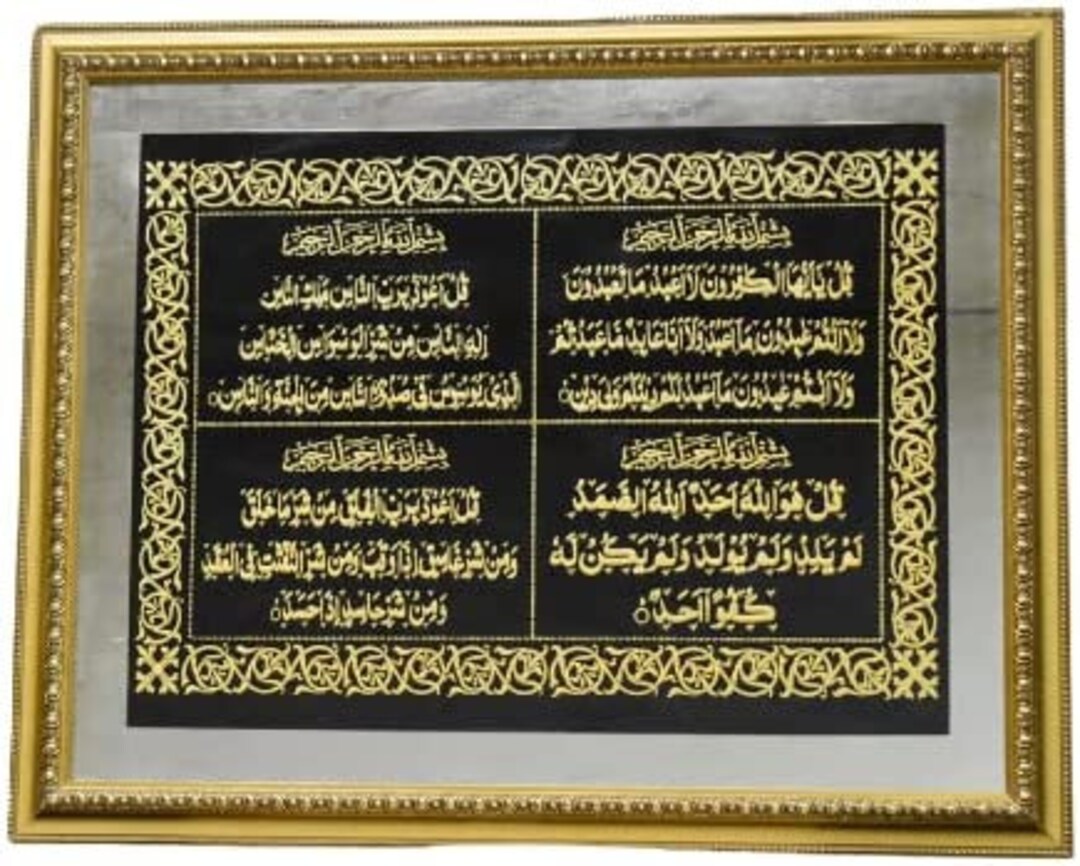 بسم الله الرحمن الرحيم
قل يايها الكفرون لا اعبد ما تعبدون
ولا انتم عبدون ما اعبد ولا انا عابد ما عبدتم
ولا انتم عبدون ما اعبد لكم دينكم ولى دين
بسم الله الرحمن الرحيم
قل اعوذ برب الناس ملك الناس
اله الناس من شر الوسواس الخناس
الذى يوسوس فى صدور الناس من الجنة والناس
بسم الله الرحمن الرحيم
قل هو الله احد الله الصمد
لم يلد ولم يولد ولم يكن له
كفوا احد
بسم الله الرحمن الرحيم
قل اعوذ برب الفلق من شر ما خلق
ومن شر غاسق اذا وقب ومن شر النفثت فى العقد
ومن شر حاسد اذا حسد